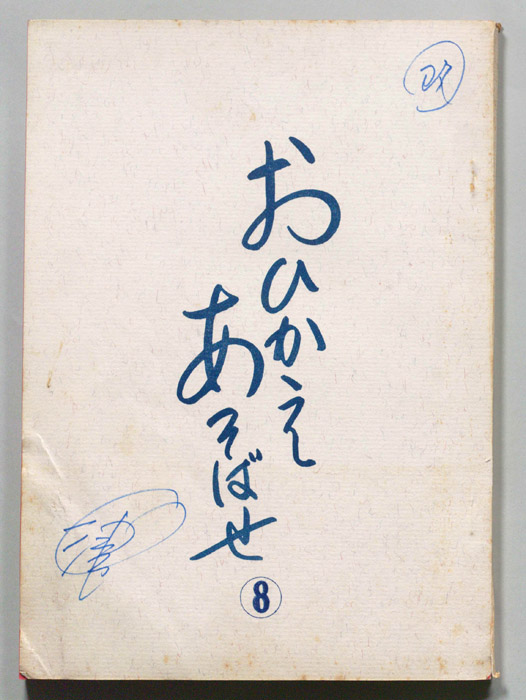 おひかえ
あそばせ
8